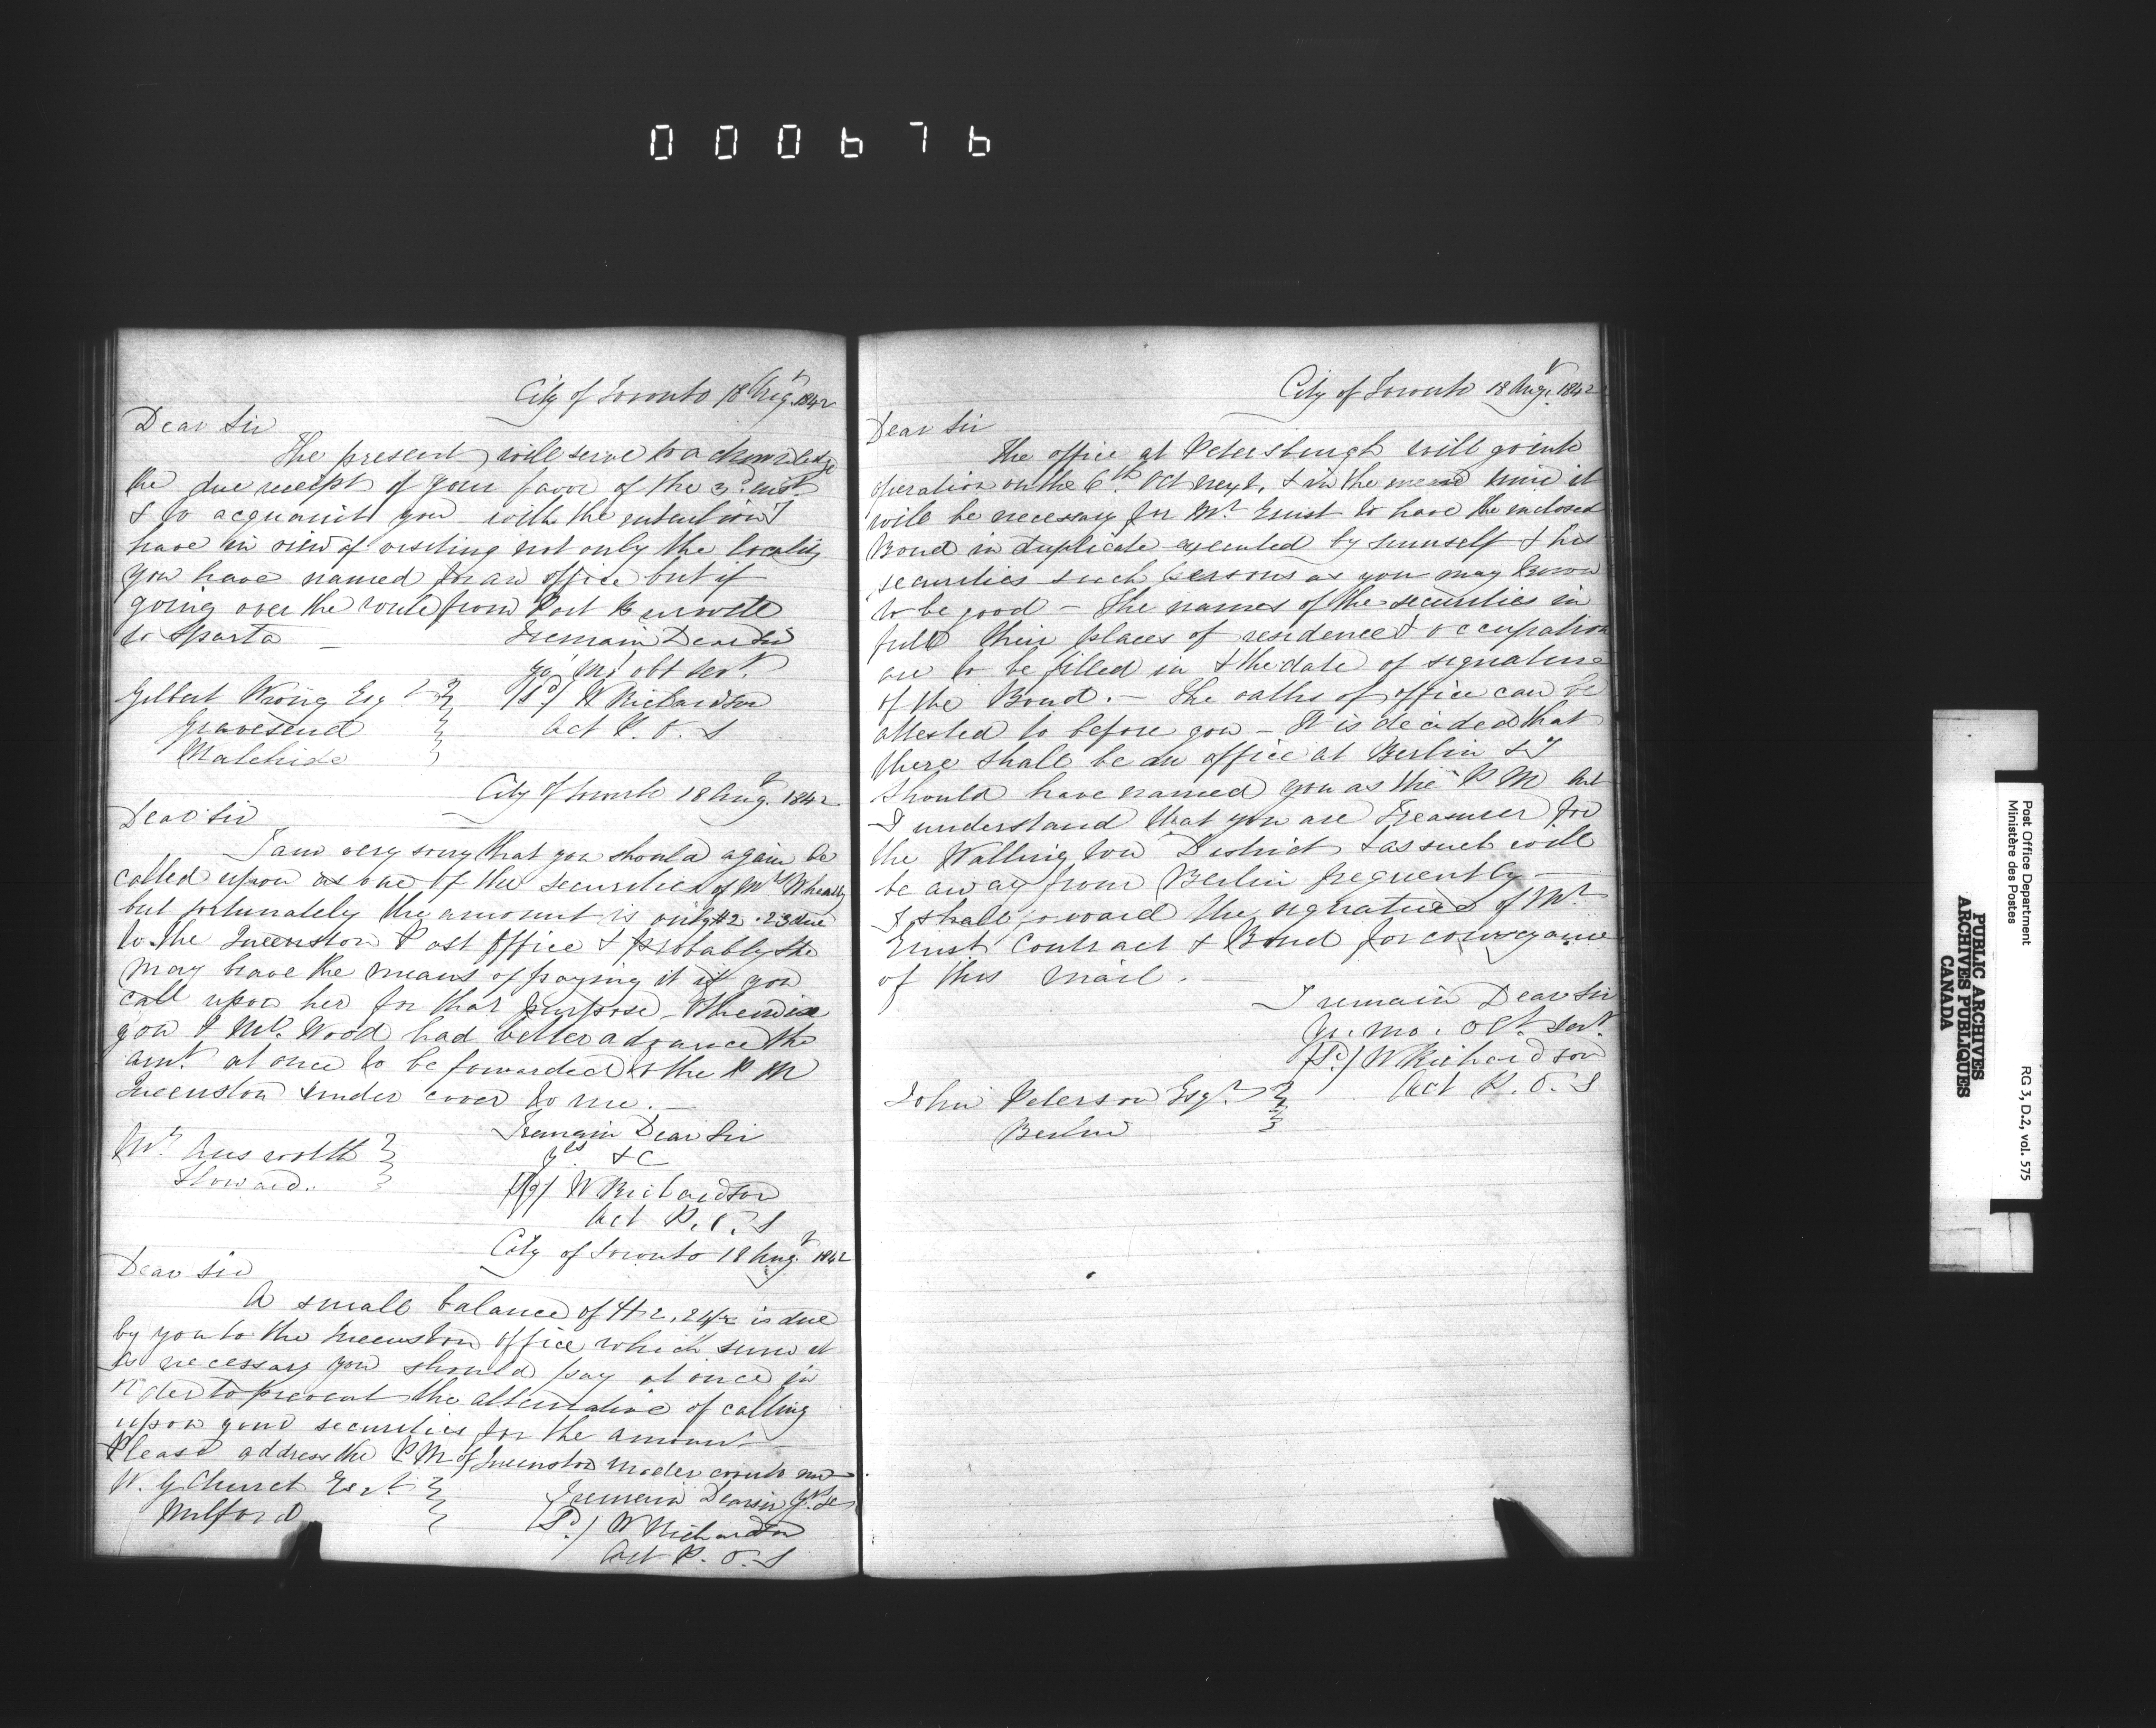 000676
City of Toronto 18 Augt. 1842
Dear Sir
The present will serve to acknowledge
the due receipt of your favor of the 3d. inst.
& to acquaint you with the intention I
have in view of visiting not only the locality
you have named for an office but if
going over the route from Port Burwell
to Sparta —
I remain Dear Sir
Yr. Mo. obt Servt.
(Sd.) W Richardson
Act P. O. S
Gilbert Wrong Esqr
Gravesend
Malahide
City of Toronto 18 Augt. 1842
Dear Sir
I am very sorry that you should again be
called upon as one of the securities of Mrs
but fortunately the amount is only $2.23 due
to the Queenston Post Office & probably she
may have the means of paying it if you
call upon her for that purpose — Otherwise
you & Mr. Wood had better advance the
amt. at once to be forwarded to the P M
Queenston under cover to me. —
I remain Dear Sir
Yrs &c
(Sd.) W Richardson
Act P. O. S
Mr.
City of Toronto 18 Augt. 1842
Dear Sir
A small balance of $2, is due
by you to the Queenston office which sum it
is necessary you should pay at once in
order to prevent the alternative of calling
upon your securities for the amount —
Please address the P M of Queenston under cover to me —
I remain Dear Sir Yrs. &c
(Sd.) W Richardson
Act P. O. S
W. G Church Esqr.
Milford
City of Toronto 18 Augt. 1842
Dear Sir
The office at Petersburgh will go into
operation on the 6th. Oct next, & in the mean time it
will be necessary for Mr. Ernst to have the enclosed
Bond in duplicate executed by himself & his
securities such persons as you may know
to be good — The names of the securities in
full their places of residence & occupation
are to be filled in & the date of signature
of the Bond. — The oaths of office can be
attested to before you — It is decided that
there shall be an office at Berlin & I
should have named you as the P M but
I understand that you are Treasurer for
the Wellington District & as such will
be away from Berlin frequently —
I shall forward the signatures of Mr.
Ernst Contract & Bond for conveyance
of this mail. —
I remain Dear Sir
Yr. mo. obt. Servt.
(Sd.) W Richardson
Act P. O. S
John Peterson Esqr.
Berlin
Post Office Department
Ministère des Postes
RG 3, D.2, vol. 575
PUBLIC ARCHIVES
ARCHIVES PUBLIQUES
CANADA